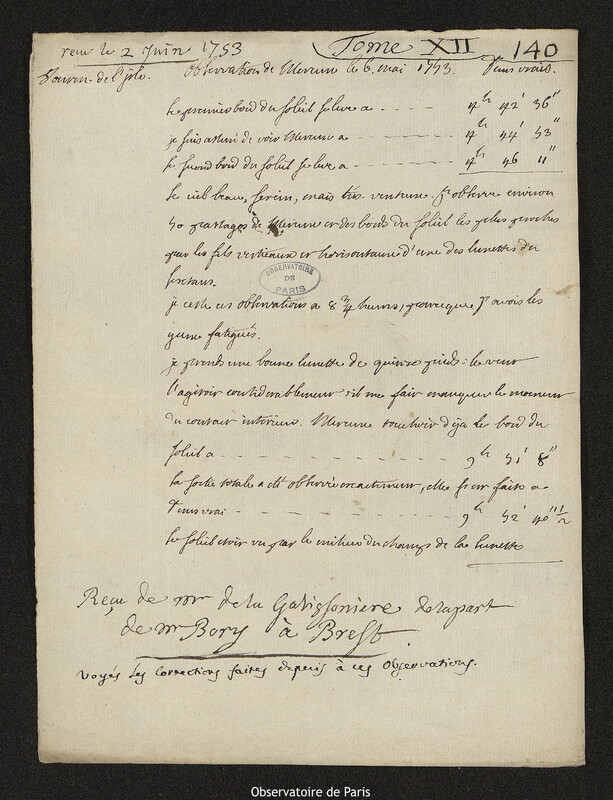 recu le 2 Juin 1753
Tome XII 140
Observation de Mercure le 6. mai 1753. Tems vrais.
Le premier bord du soleil se leve a - - - - 4h 42' 36"
je suis assuré de voir Mercure a - - - - - - 4h 44' 53"
Le second bord du soleil se leve a - - - - - 4h 46 11"
Le ciel beau, serein, mais tres venteux. J'observe environ
50 passages de Mercure et des bords du soleil les plus proches
par les fils verticaux et horisontaux d'une des lunettes du
sextans.
OBSERVATOIRE
DE
PARIS
je cesse ces observations a 8 3/4 heures, parceque j'avois les
yeux fatigués.
je prends une bonne lunette de quinze pieds: le vent
l'agitoit considerablement; il me fait manquer le moment
du contact interieur. Mercure touchoit deja le bord du
soleil a - - - - - - - - - 9h 51' 8"
la sortie totale a été observée exactement, elle s'est faite a
Tems vrai - - - - - - - - - 9h 52' 40" 1/2
Le soleil etoit vu par le milieu du champs de la lunette
Reçu de mr de la Galissoniere de la part
de mr Bory à Brest
Voyés les corrections faites depuis à ces Observations.
Observatoire de Paris